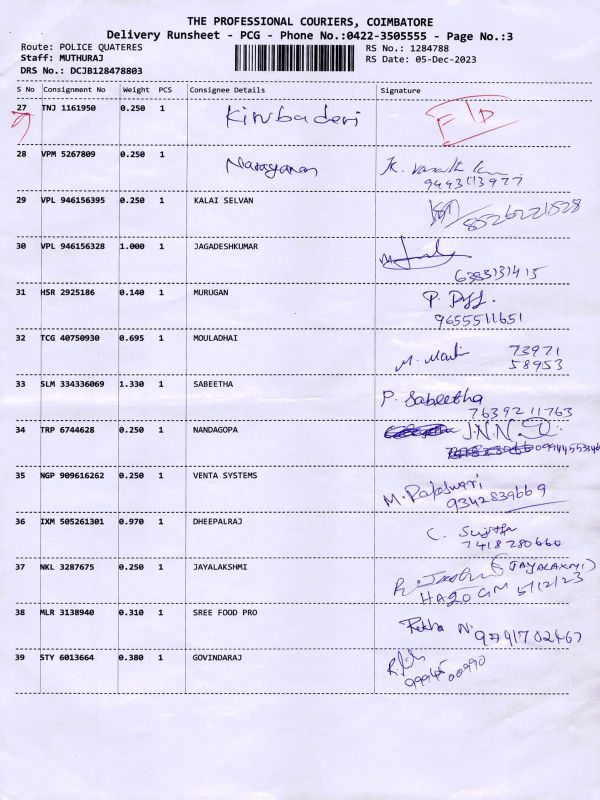 THE PROFESSIONAL COURIERS, COIMBATORE
Delivery Runsheet - PCG - Phone No.:0422-3505555 - Page No.:3
Route: POLICE QUATERES RS No.: 1284788
Staff: MUTHURAJ RS Date: 05-Dec-2023
DRS No.: DCJB128478803
S No Consignment No Weight PCS Consignee Details Signature
27 TNJ 1161950 0.250 1 Kirubaderi
28 VPM 5267809 0.250 1 Narayanan
9443113977
29 VPL 946156395 0.250 1 KALAI SELVAN
8526221528
30 VPL 946156328 1.000 1 JAGADESHKUMAR
6383131415
31 HSR 2925186 0.140 1 MURUGAN P.
9655511651
32 TCG 40750930 0.695 1 MOULADHAI
M. 73971
58953
33 SLM 334336069 1.330 1 SABEETHA P. Sabeetha
7639211763
34 TRP 6744628 0.250 1 NANDAGOPA J.N.N.
35 NGP 909616262 0.250 1 VENTA SYSTEMS M. Rajeswari
9342839669
36 IXM 505261301 0.970 1 DHEEPALRAJ C. Sujitha
7418280660
37 NKL 3287675 0.250 1 JAYALAKSHMI (JAYALAXMI)
5/12/23
38 MLR 3138940 0.310 1 SREE FOOD PRO Rekha N.
9741702467
39 STY 6013664 0.380 1 GOVINDARAJ